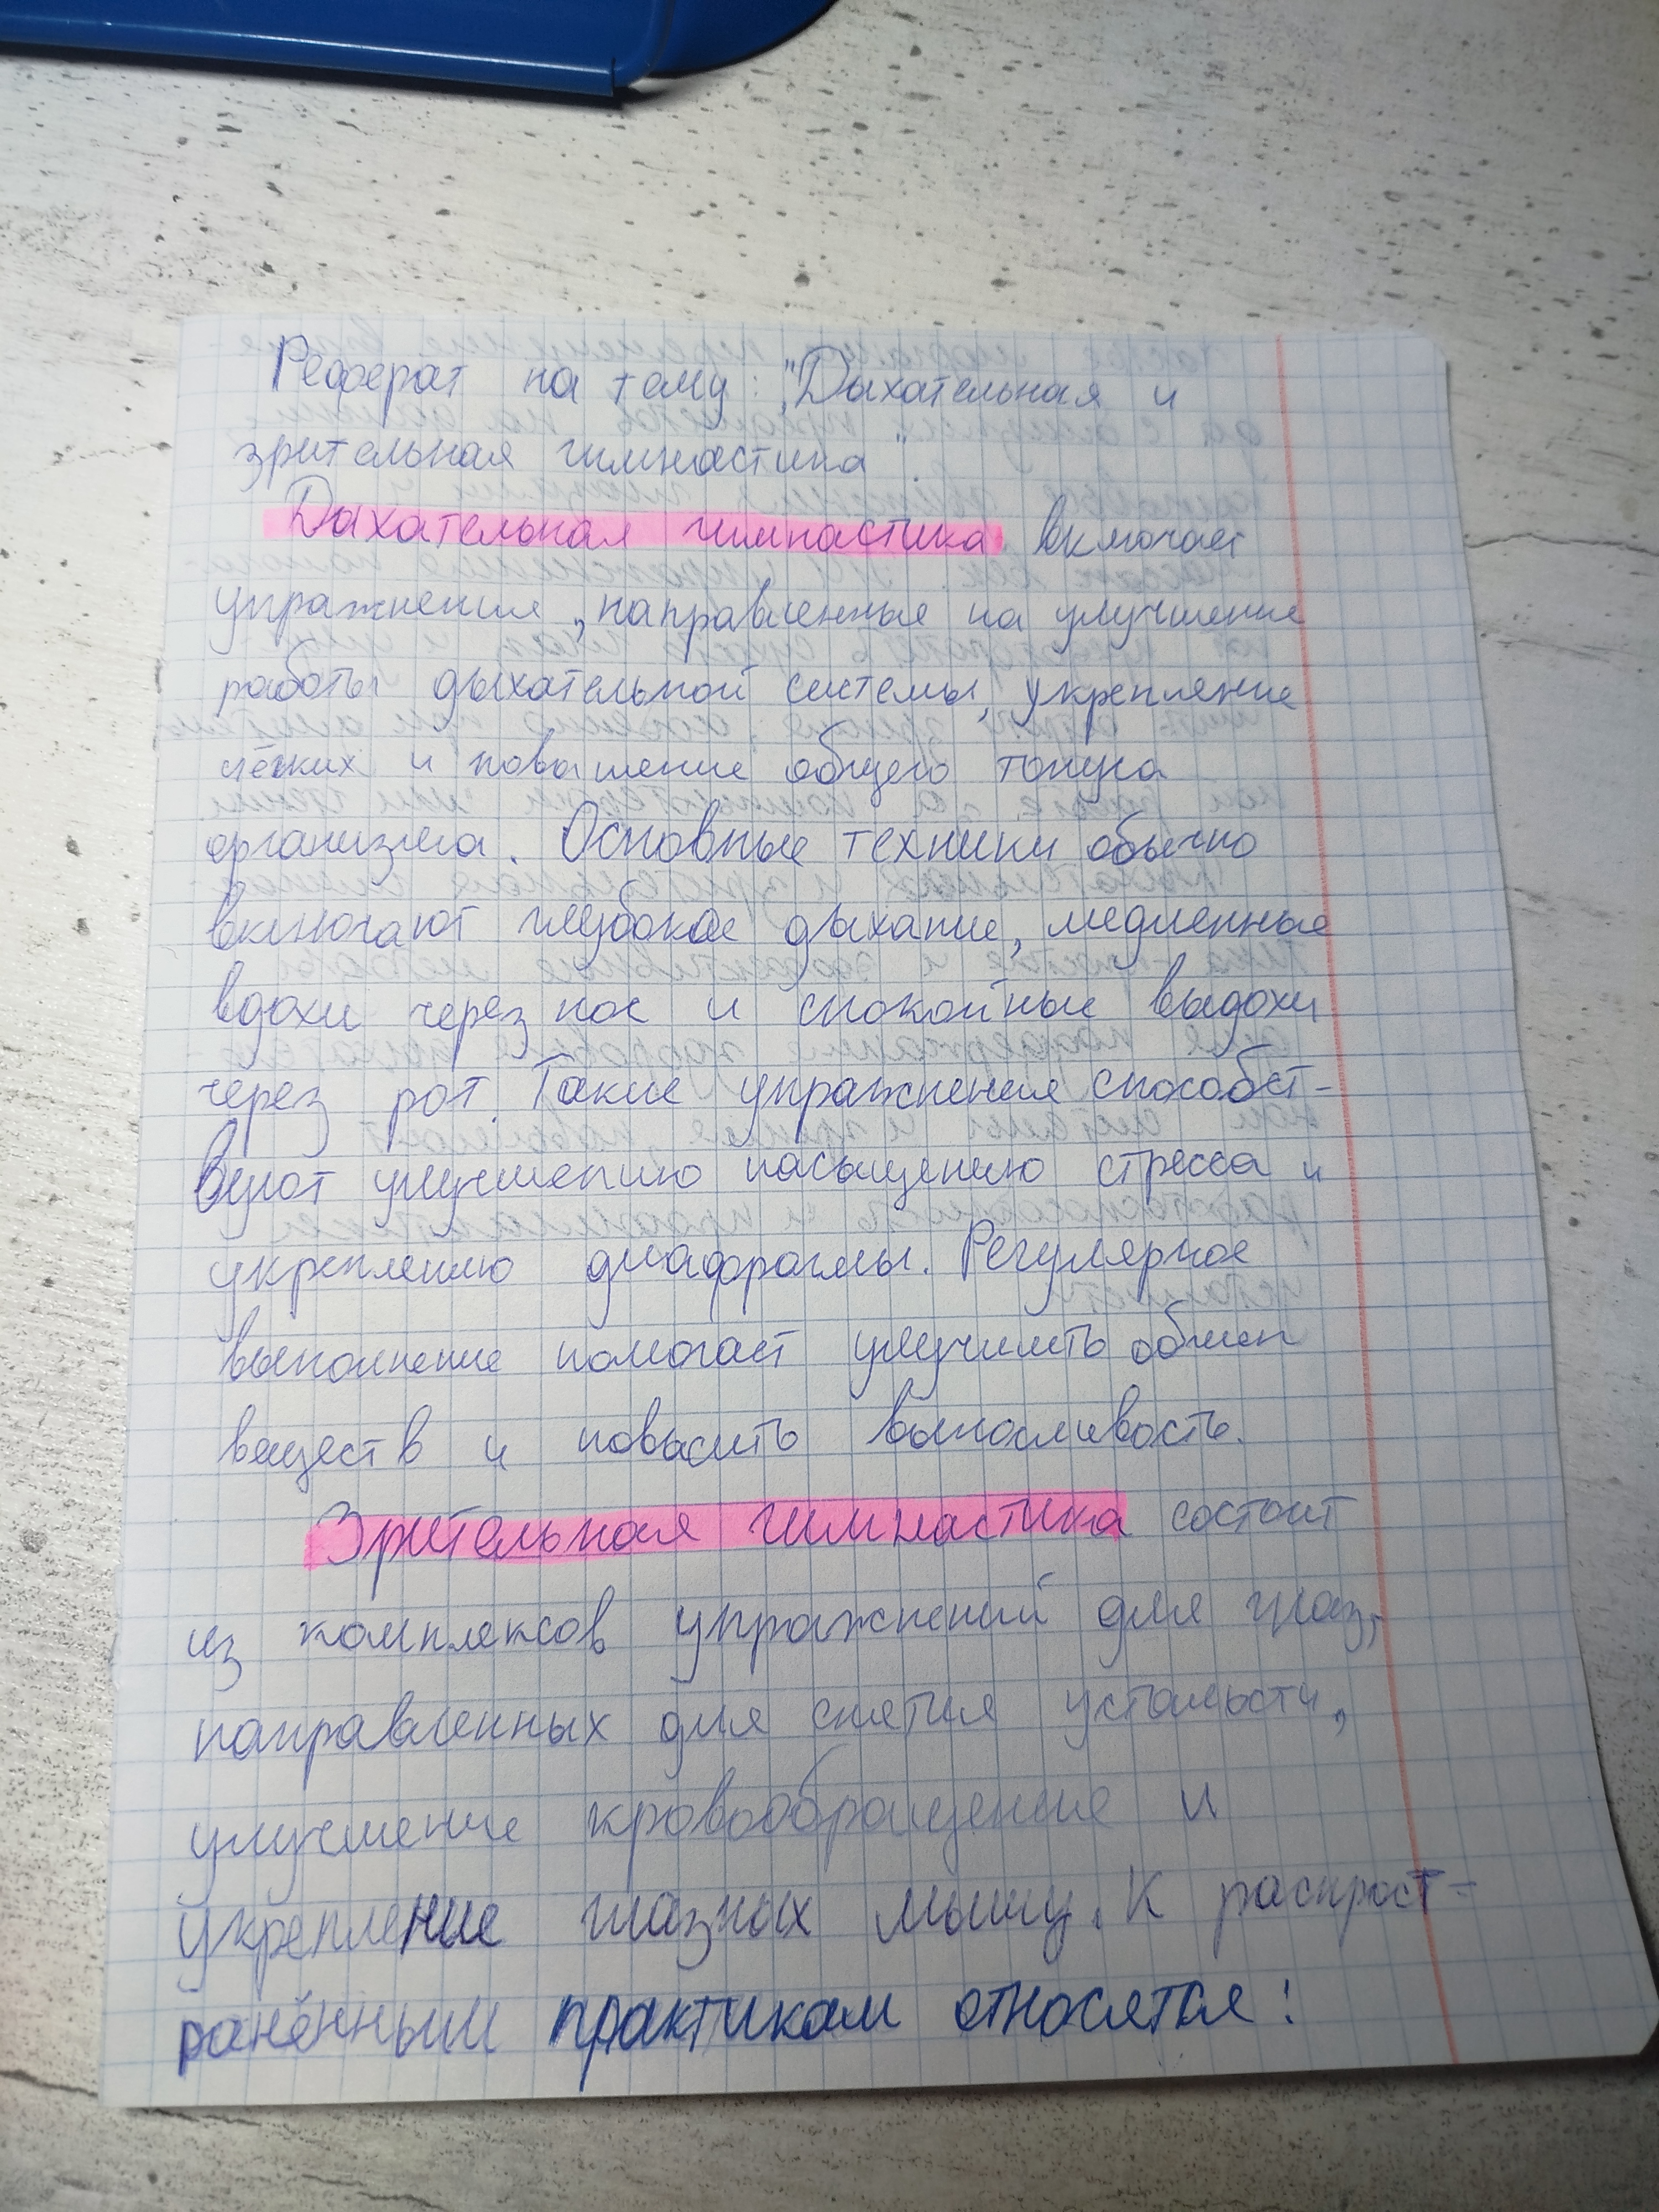 Реферат на тему: „Дыхательная и
зрительная гимнастика".
Дыхательная гимнастика включает
упражнения, направленные на улучшение
работы дыхательной системы, укрепление
лёгких и повышение общего тонуса
организма. Основные техники обычно
включают глубокое дыхание, медленные
вдохи через нос и спокойные выдохи
через рот. Такие упражнения способст-
вуют улучшению насыщению стресса и
укреплению диафрагмы. Регулярное
выполнение помогает улучшить обмен
веществ и повысить выносливость.
Зрительная гимнастика состоит
из комплексов упражнений для глаз,
направленных для снятия усталости,
улучшение кровообращение и
укрепление глазных мышц. К распрост-
ранённым практикам относятся: